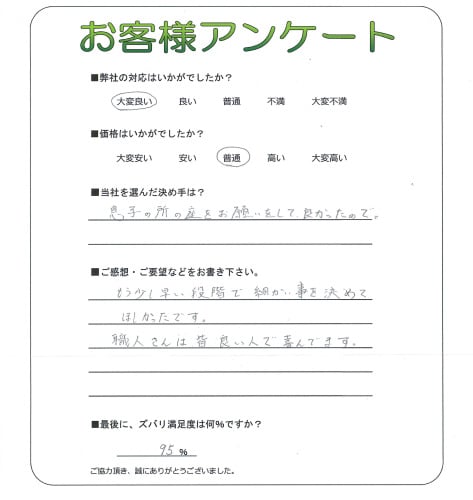 お客様アンケート
■弊社の対応はいかがでしたか？
大変良い 良い 普通 不満 大変不満
■価格はいかがでしたか？
大変安い 安い 普通 高い 大変高い
■当社を選んだ決め手は？
息子の所の座をお願いをして良かったので。
■ご感想・ご要望などをお書き下さい。
もう少し早い段階で細かい事を決めて
ほしかったです。
職人さんは皆良い人で喜んでます。
■最後に、ズバリ満足度は何％ですか？
95 ％
ご協力頂き、誠にありがとうございました。